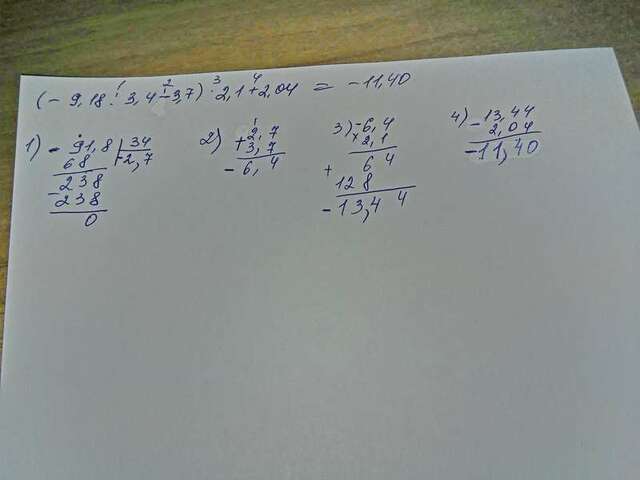 (- 9,18 : 3,4 - 3,7) · 2,1 + 2,04 = -11,40
1) - 91,8 | 34
68 | -2,7
- 238
238
0
2) + 2,7
3,7
- 6,4
3) -6,4
× 2,1
64
+ 128
- 13,44
4) - 13,44
2,04
-11,40